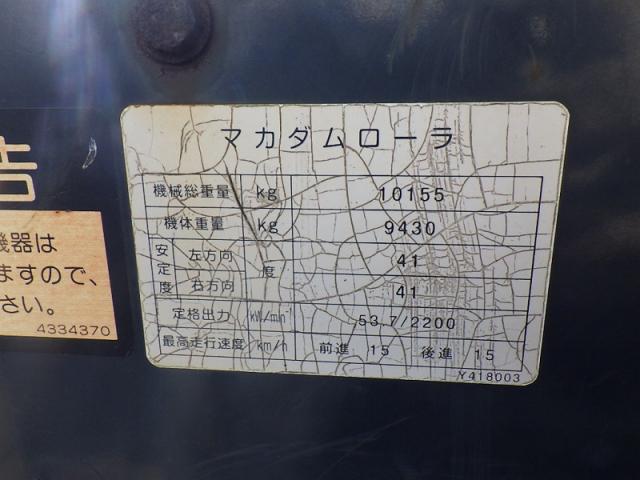 告
機器は
ますので、
さい。
4334370
マカダムローラ
機械総重量 kg 10155
機体重量 kg 9430
安定度 左方向 度 41
右方向 41
定格出力 kW/min⁻¹ 53.7/2200
最高走行速度 km/h 前進 15 後進 15
Y418003